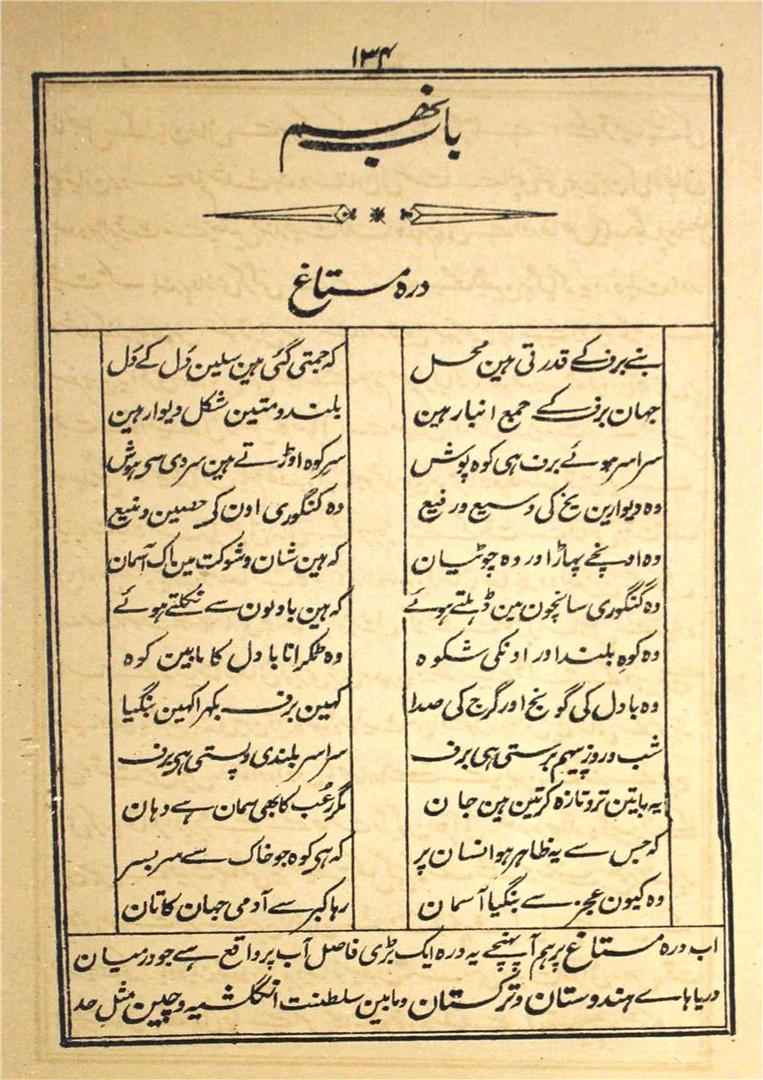 ۱۳۴
باب نہم
درہ مستاغ
بنے برف کے قدرتی ہین محل
کہ جمتی گئی ہین سلین دَل کے دَل
جہان برف کے جمع انبار ہین
بلند و متین شکل دیوار ہین
سراسر ہوئے برف ہی کوہ پوش
سرِ کوہ اوڑتے ہین سردی سی ہوش
وہ دیوارین یخ کی وسیع و رفیع
وہ کنگوری اون کے حصین و منیع
وہ اونچے پہاڑ اور وہ چوٹیان
کہ ہین شان و شوکت مین اک آسمان
وہ کنگوری سانچون مین ڈہلتے ہوئے
کہ ہین بادلون سے نکلتے ہوئے
وہ کوہِ بلند اور اونکی شکوہ
وہ ٹکرانا بادل کا مابین کوہ
وہ بادل کی گونج اور گرج کی صدا
کہین برف بکہرا کہین بنگیا
شب و روز پیہم برستی ہی برف
سراسر بلندی و پستی ہی برف
یہ باتین تر و تازہ کرتین ہین جان
مگر رُعب کا بھی سمان ہے وہان
کہ جس سے یہ ظاہر ہو انسان پر
کہ ہی کوہ جو خاک سے سربسر
وہ کیون عجز سے بنگیا آسمان
رہا کبر سے آدمی جہان کا تان
اب درہ مستاغ پر ہم آ پہنچے یہ درہ ایک بڑی فاصل آب پر واقع ہے جو درمیان
دریاہاے ہندوستان و ترکستان و مابین سلطنت انگلشیہ و چین مثلِ حد